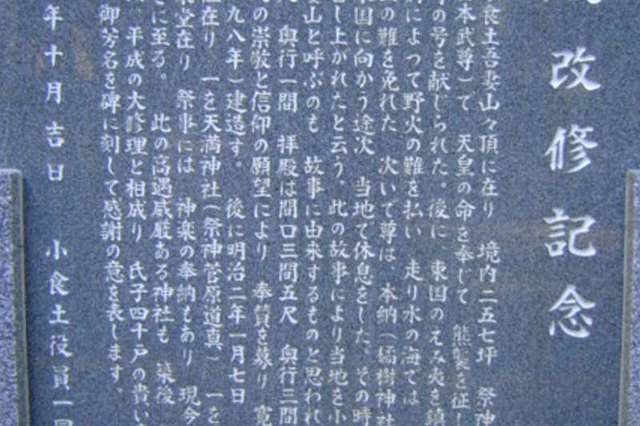 改修記念
食土吾妻山々頂に在り 境内二五七坪 祭神
本武尊)で 天皇の命を奉じて 熊襲を征し
の号を献じられた。後に 東国のえみ夷を鎮
によつて野火の難を払い 走り水の海では
の難を免れた 次いで尊は 本納(橘樹神社
国に向かう途次 当地で休息をした。その時
し上がれたと云う。此の故事により当地を小
山と呼ぶのも 故事に由来するものと思われ
奥行一間 拝殿は間口三間五尺 奥行三間
の崇敬と信仰の願望により 奉賛を募り 寛
九八年)建造す。 後に明治二年一月七日
在り 一を天満神社(祭神菅原道真) 一を
堂在り 祭事には 神楽の奉納もあり 現今
に至る。 此の高遇威厳ある神社も 築後
平成の大修理と相成り 氏子四十戸の貴い
御芳名を碑に刻して感謝の意を表します。
年十月吉日 小食土役員一同